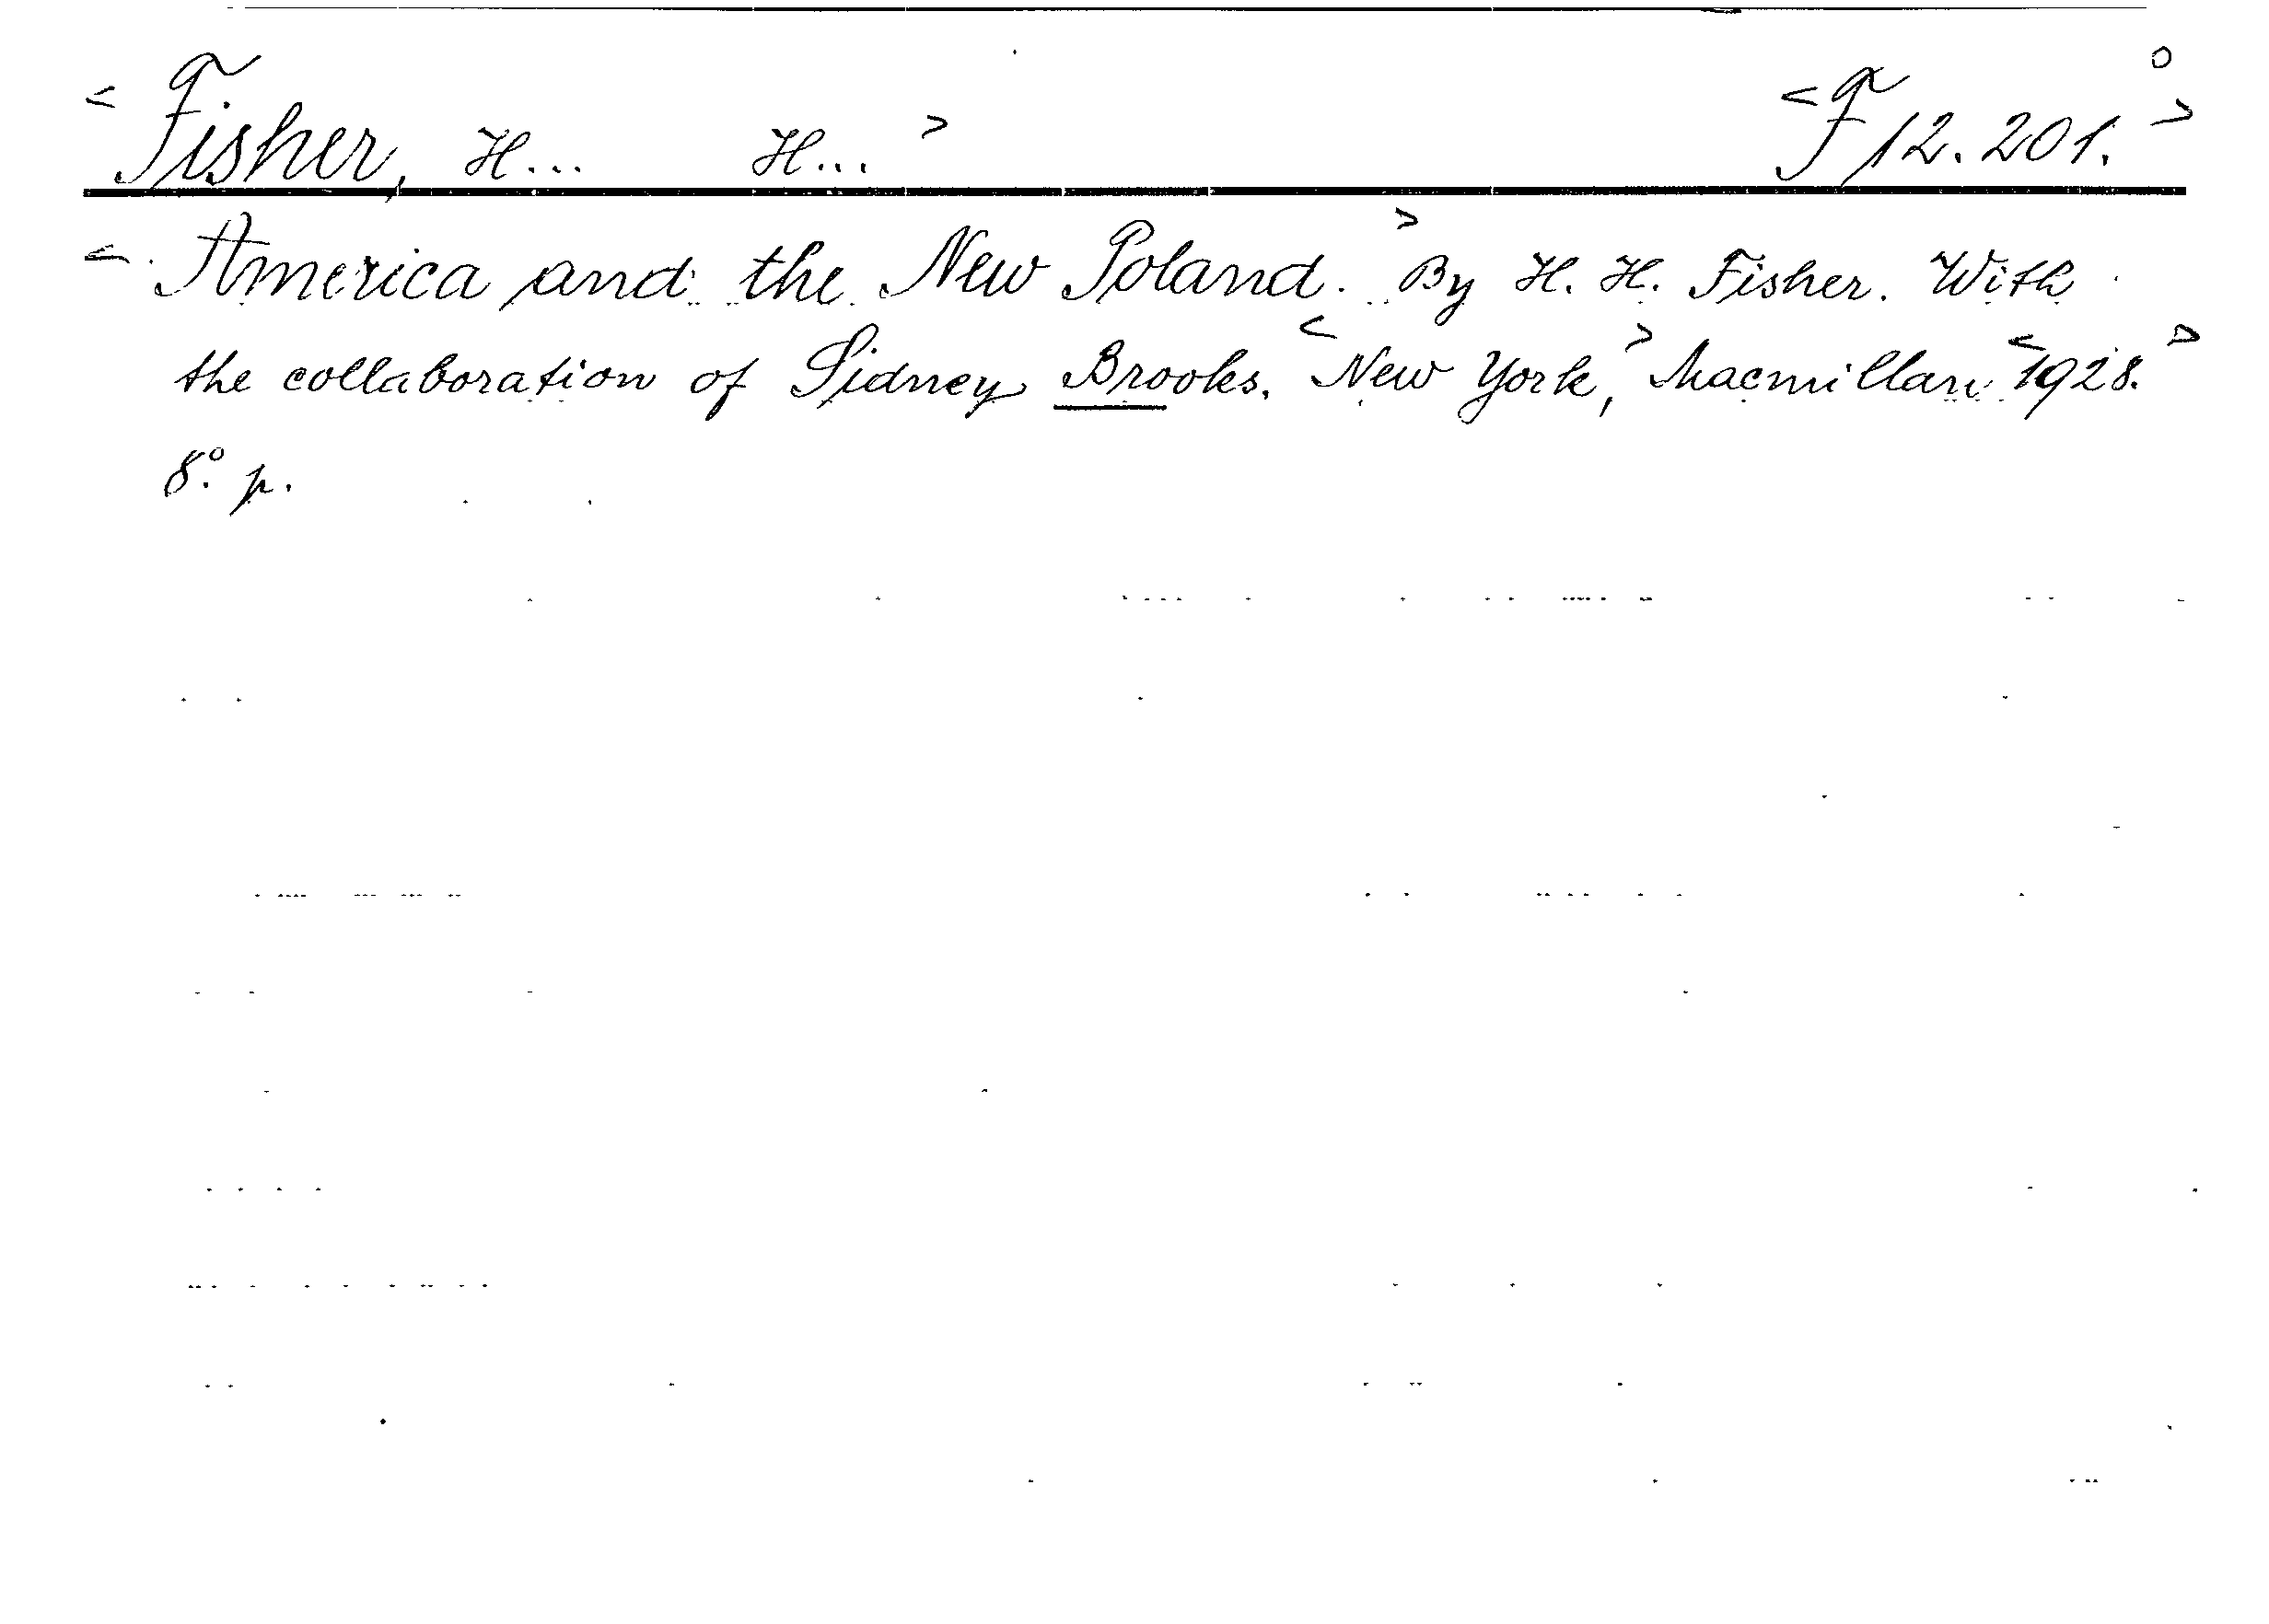 <Fisher, H... H...> <F 12.201.>
<America and the New Poland.> By H. H. Fisher. With
the collaboration of Sidney Brooks. <New York,> Macmillan <1928.>
8°. p.